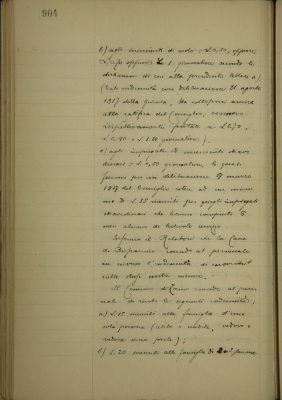 904
b) agli inservienti di ruolo L 0.50, oppure
L 0.75 oppure L 1. giornaliere secondo le
distinzioni di cui alla precedente lettera a)
(Tale indennità con deliberazione 31 agosto
1917 della Giunta, da sottoporsi ancora
alla ratifica del Consiglio, vennero
rispettivamente portate a L 0.70,
L 0.90 e L 1.20 giornaliere).
c) agli impiegati ed inservienti straor-
dinari L 0,50 giornaliere, le quali
furono poi con deliberazione 19 marzo
1917 del Consiglio estese ad un massi-
mo di L 25 mensili per quegli impiegati
straordinari che hanno compiuto
non almeno di servizio
Informa il Relatore che la Cassa
di Risparmio concede al personale
in servizio l'indennità di caroviveri
nella stessa misura.
Il Comune di Como concede al perso-
nale di ruolo le seguenti indennità:
a) L 15 mensili alle famiglie d'una
sola persona (celibe o nubile, vedovo o
vedova senza prole);
b) L 20 mensili alle famiglie di due persone